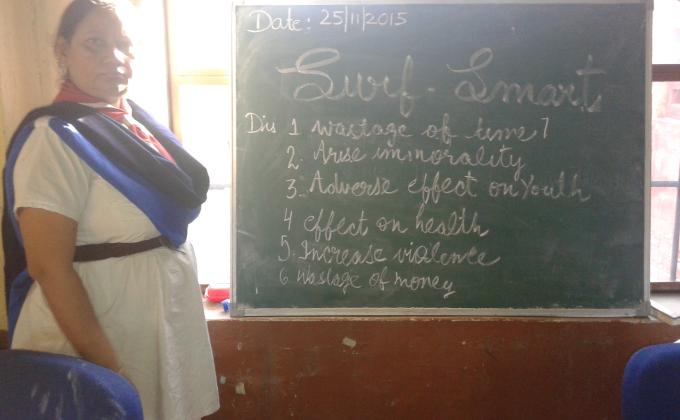 Date: 25/11/2015
Surf-Smart
Dis 1 wastage of time 7
2. Arise immorality
3. Adverse effect on Youth
4 effect on health
5. Increase violence
6 wastage of money